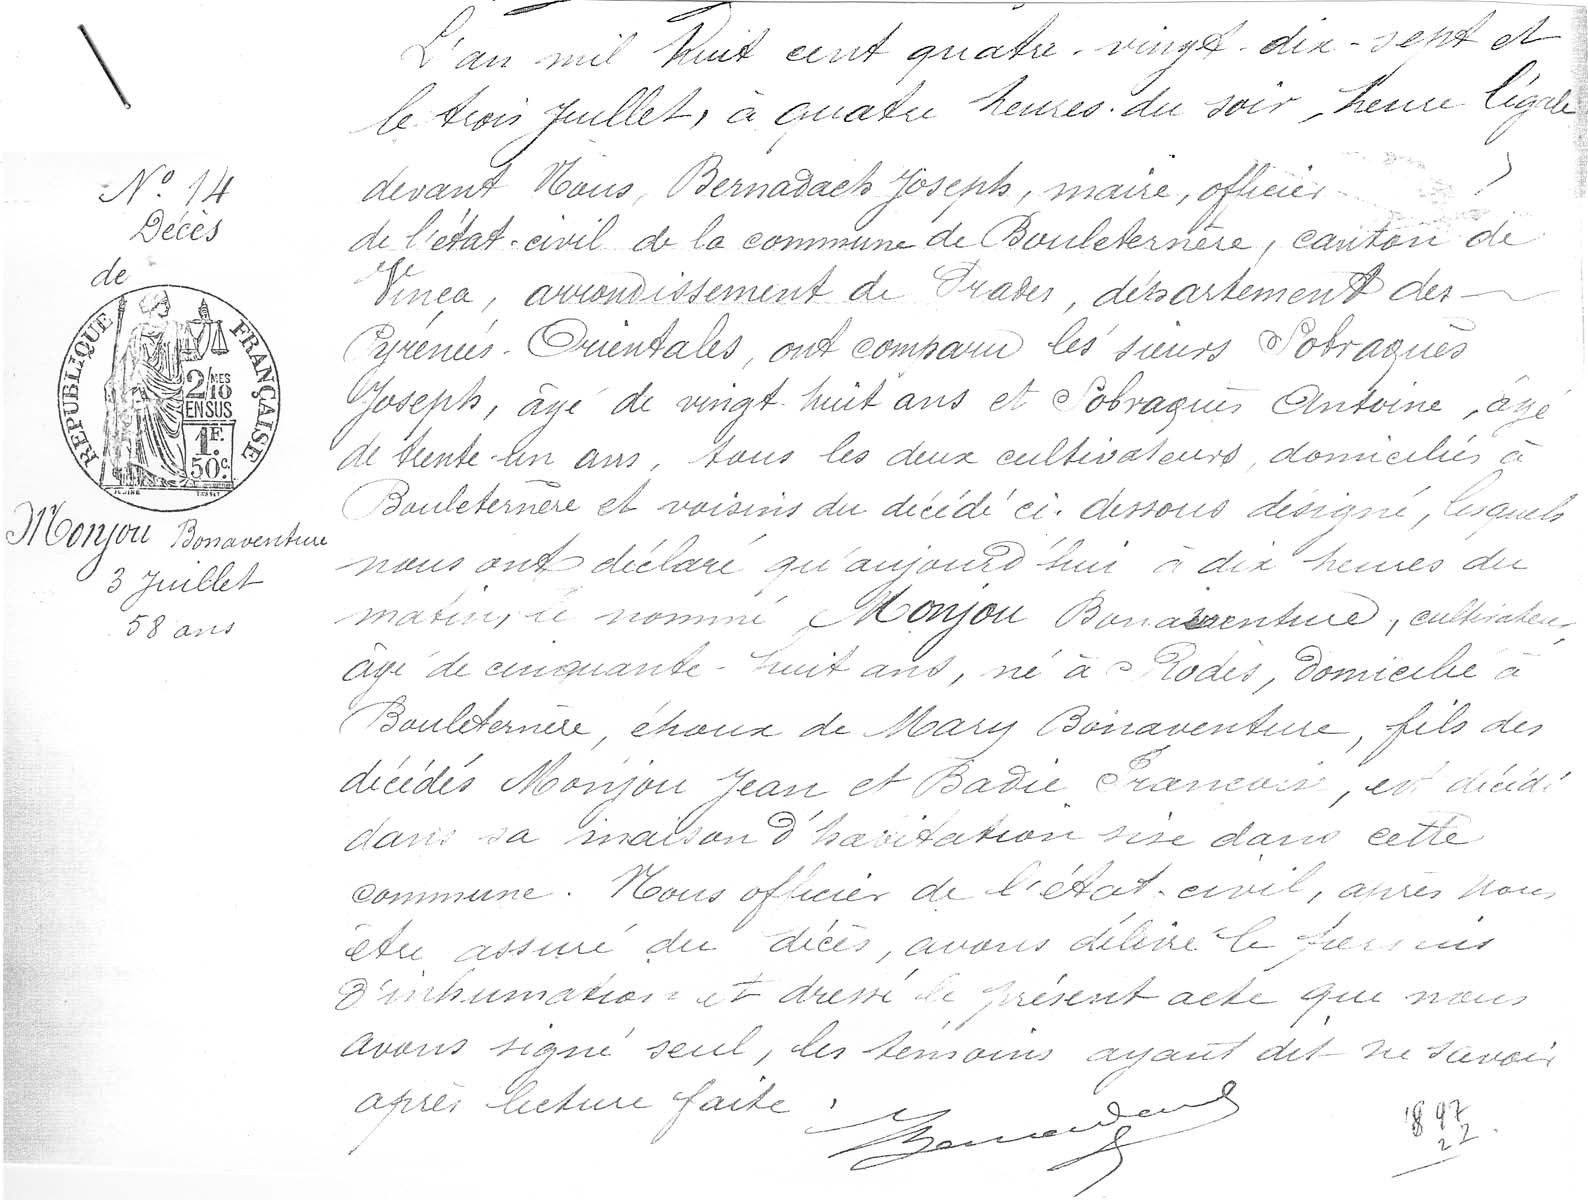 L'an mil huit cent quatre-vingt-dix-sept et
le trois Juillet, à quatre heures du soir, heure légale
devant Nous, Bernadach Joseph, maire, officier
de l'état-civil de la commune de Bouleternère, canton de
Vinça, arrondissement de Prades, département des
Pyrénées-Orientales, ont comparu les sieurs Sobraquès
Joseph, âgé de vingt-huit ans et Sobraquès Antoine, âgé
de trente-un ans, tous les deux cultivateurs, domiciliés à
Bouleternère et voisins du décédé ci-dessous désigné, lesquels
nous ont déclaré qu'aujourd'hui à dix heures du
matin, le nommé Monjou Bonaventure, cultivateur,
âgé de cinquante-huit ans, né à Rodès, domicilié à
Bouleternère, époux de Mary Bonaventure, fils des
décédés Monjou Jean et Badie François, est décédé
dans sa maison d'habitation sise dans cette
commune. Nous officier de l'état-civil, après nous
être assuré du décès, avons délivré le permis
d'inhumation et dressé le présent acte que nous
avons signé seul, les témoins ayant dit ne savoir
après lecture faite.
Bernadach
N° 14
Décès
de
RÉPUBLIQUE FRANÇAISE
2/10 MES
EN SUS
1F.
50c.
Monjou Bonaventure
3 Juillet
58 ans
1897
22